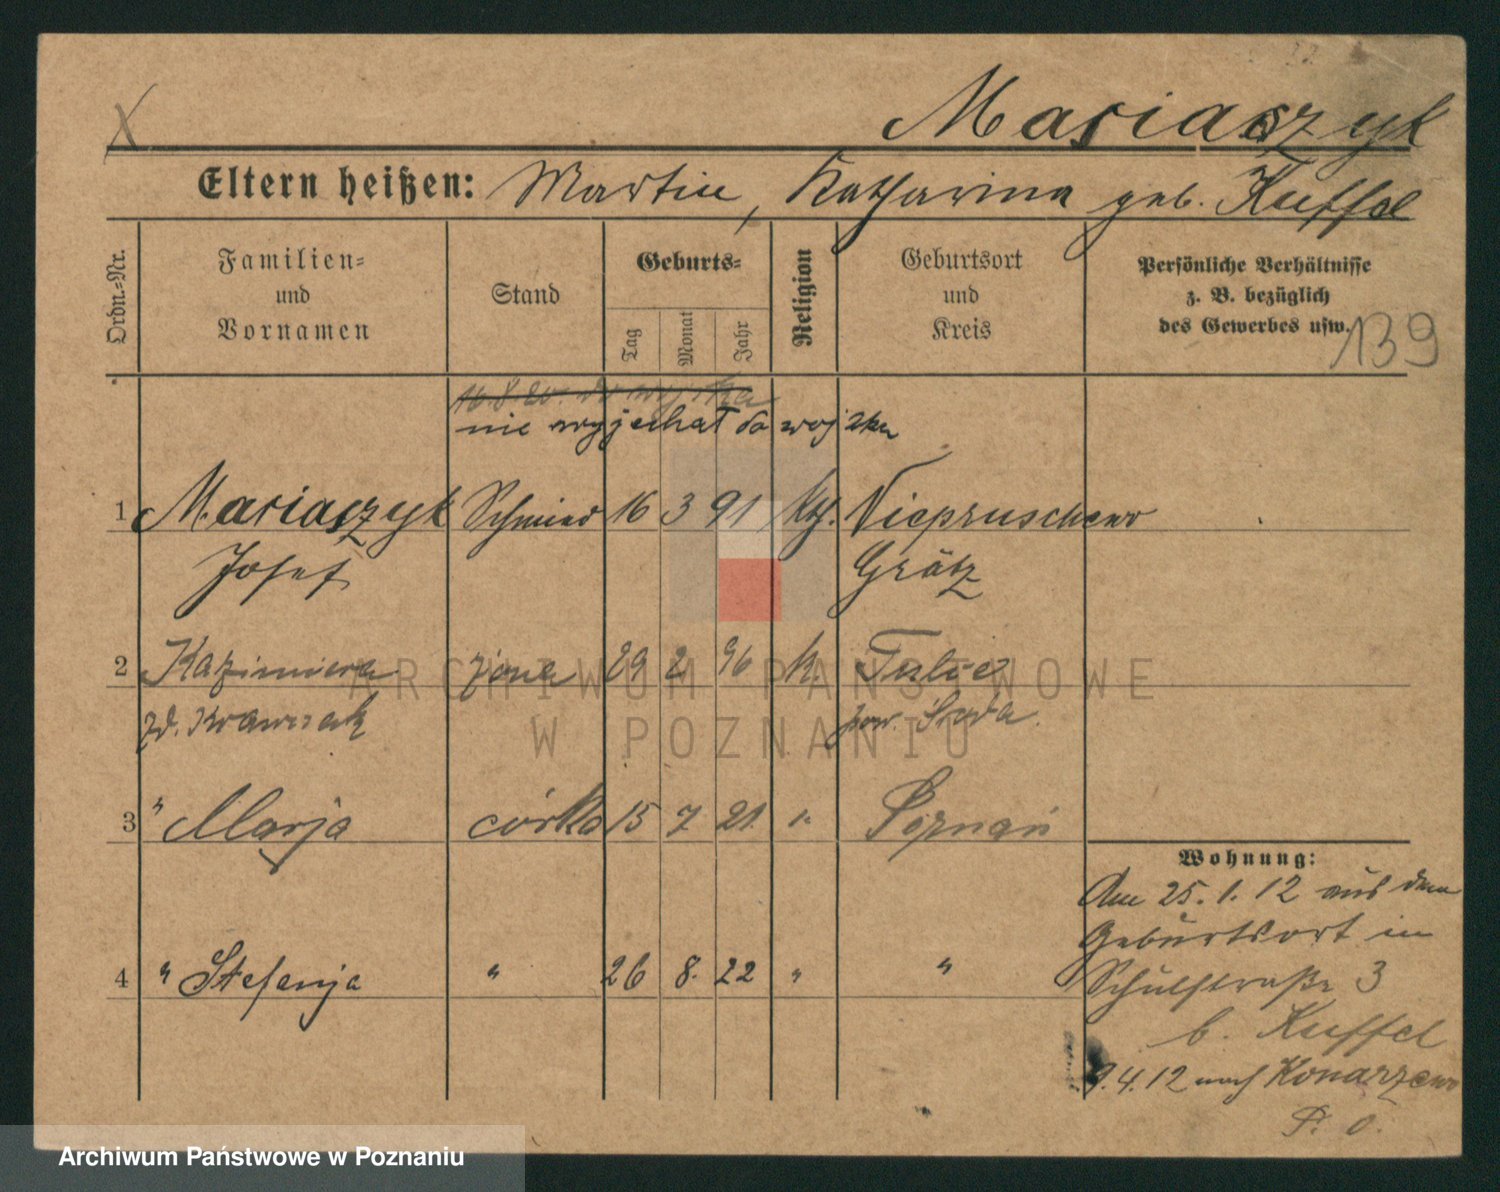 Mariaszyk
Eltern heißen: Martin, Katharina geb. Kuffel
Ordn.-Nr.
Familien-
und
Vornamen
Stand
Geburts-
Tag
Monat
Jahr
Religion
Geburtsort
und
Kreis
Persönliche Verhältnisse
z. B. bezüglich
des Gewerbes usw.
139
nie wyjechał do wojska
1 Mariaszyk Schmied 16 3 91 kth. Niepruschewo
Josef Grätz
2 Kazimiera żona 29 2 96 k. Tulce
zd. Krawczak pow. Środa
3 " Marja córka 15 7 21 " Poznań
Wohnung:
Am 25. 1. 12 aus dem
Geburtsort in
4 " Stefanja " 26 8. 22 " "
Schulstraße 3
b. Kuffel
9. 4. 12 nach Konarzewo
P. O.
ARCHIWUM PAŃSTWOWE
W POZNANIU
Archiwum Państwowe w Poznaniu